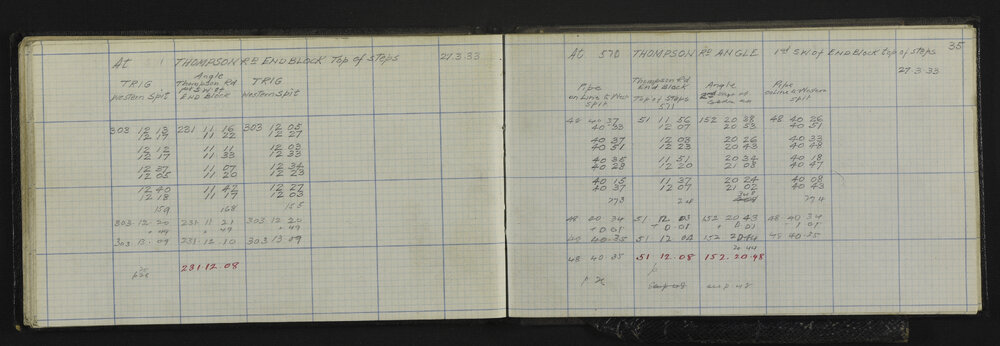 At THOMPSON RD END BLOCK Top of Steps 27.3.33
TRIG Angle TRIG
Western Spit Thompson Rd Western Spit
1st S.W. of
END Block
303 12 13 231 11 16 303 12 05
12 17 11 22 12 27
12 12 11 11 12 03
12 17 11 33 12 33
12 37 11 07 12 34
12 05 11 20 12 23
12 40 11 47 12 27
12 18 11 17 12 03
159 168 155
303.12.20 231.11 21 303 12 20
+ 49 + 49 + 49
303 13.09 231.12.10 303 13 09
231.12.08
35
At 570 THOMPSON RD ANGLE 1st S.W of END Block top of Steps
27.3.33
Pipe Thompson Rd Angle Pipe
on Line to West End Block on Line to Western
Spit Top of Steps Spit
571
48 40 37 51 11 56 152 20 38 48 40 26
40 33 12 07 20 53 40 51
40 37 12 08 20 26 40 33
40 51 12 23 20 43 40 48
40 35 11 51 20 34 40 18
40 28 12 20 21 08 40 47
40 15 11 37 20 24 40 08
40 37 12 07 21 02 40 43
273 24 348 274
48 20 34 51 12 03 152 20 43 48 40 34
+ 0 01 + 0 01 + 0 01 + 01
48 40.35 51 12 04 152 20 44 48 40.35
20 44
48 40 35 51 12.08 152.20.48